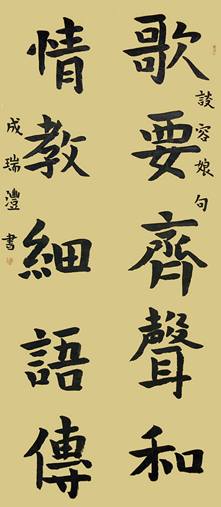 歌要齊聲和
情教細語傳
談容娘句
成瑞灃書